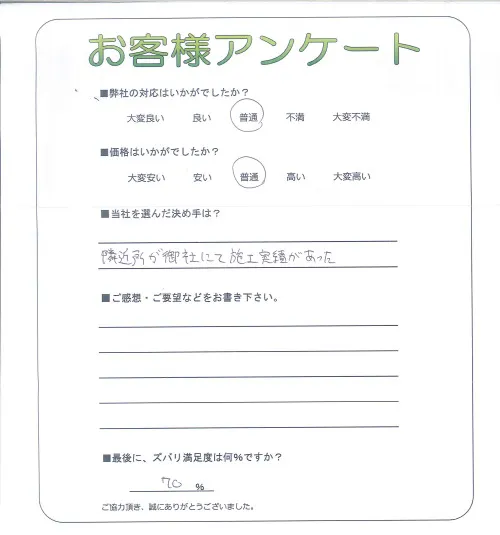 お客様アンケート
■弊社の対応はいかがでしたか？
大変良い 良い 普通 不満 大変不満
■価格はいかがでしたか？
大変安い 安い 普通 高い 大変高い
■当社を選んだ決め手は？
隣近所が御社にて施工実績があった
■ご感想・ご要望などをお書き下さい。
■最後に、ズバリ満足度は何％ですか？
70 ％
ご協力頂き、誠にありがとうございました。